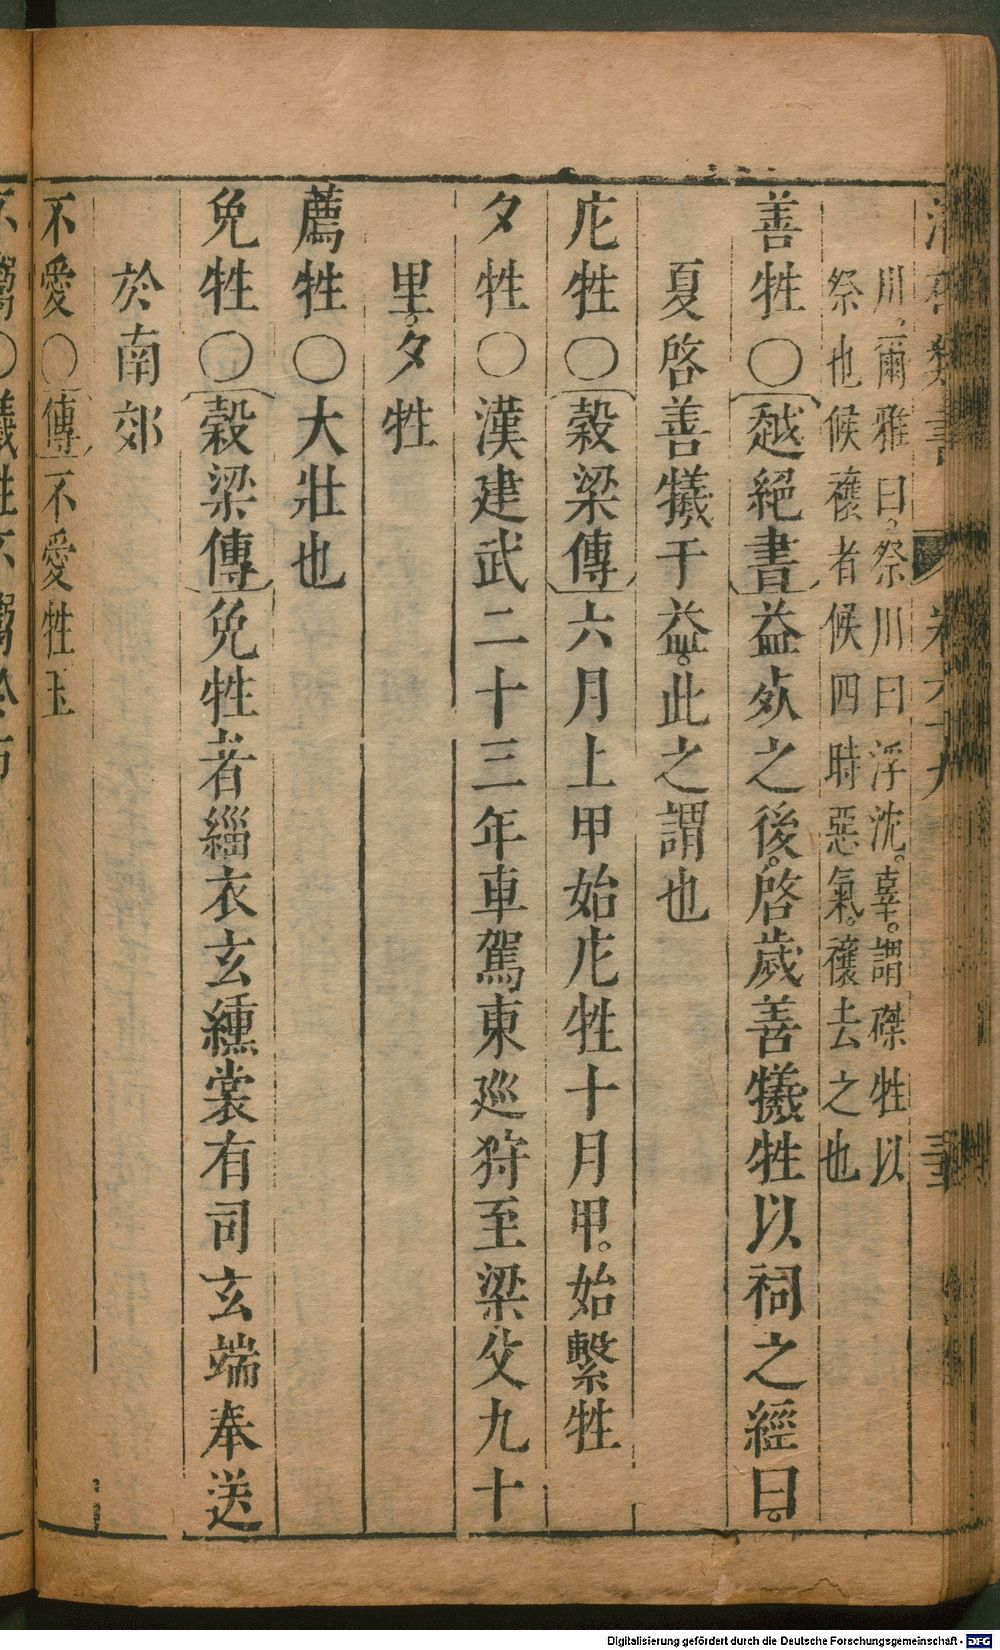 川爾雅曰祭川曰浮沈。辜。謂磔牲以
祭也候禳者候四時惡氣。禳去之也
善牲〇越絕書益歿之後。啓歲善犧牲以祠之經曰。
夏啓善犧于益。此之謂也
庀牲〇穀梁傳六月上甲始庀牲十月甲。始繫牲
夕牲〇漢建武二十三年車駕東巡狩至梁父九十
里。夕牲
薦牲〇大壯也
免牲〇穀梁傳免牲者緇衣玄纁裳有司玄端奉送
於南郊
不愛〇傳不愛牲玉
Digitalisierung gefördert durch die Deutsche Forschungsgemeinschaft - DFG